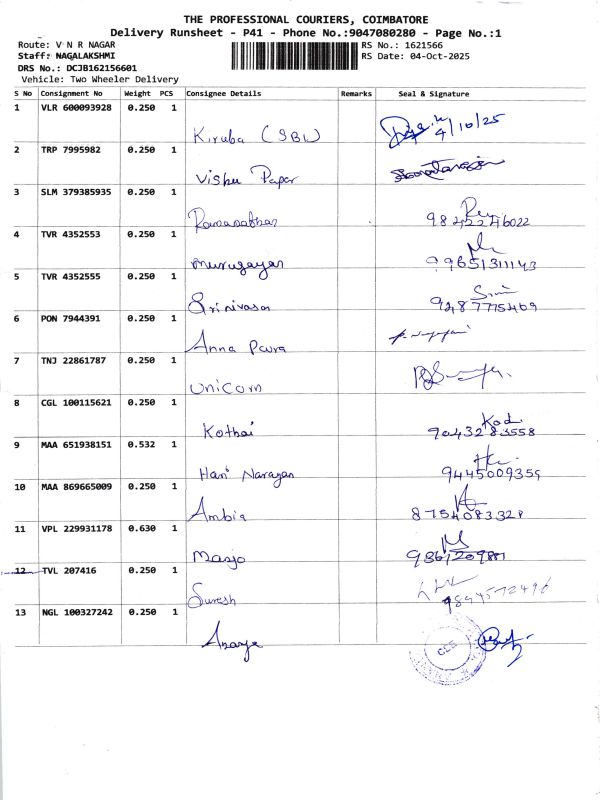 THE PROFESSIONAL COURIERS, COIMBATORE
Delivery Runsheet - P41 - Phone No.:9047080280 - Page No.:1
Route: V N R NAGAR
RS No.: 1621566
Staff: NAGALAKSHMI
RS Date: 04-Oct-2025
DRS No.: DCJB162156601
Vehicle: Two Wheeler Delivery
S No Consignment No Weight PCS Consignee Details Remarks Seal & Signature
1 VLR 600093928 0.250 1
Kiruba (SBI) 4/10/25
2 TRP 7995982 0.250 1
Vishu Papar
3 SLM 379385935 0.250 1
9842246022
4 TVR 4352553 0.250 1
Murugayan 99651311143
5 TVR 4352555 0.250 1
Srinivasan 9487775409
6 PON 7944391 0.250 1
Anna Poura
7 TNJ 22861787 0.250 1
Unicorn
8 CGL 100115621 0.250 1
Kothai Kodi
9043283558
9 MAA 651938151 0.532 1
Hari Narayan 9445009359
10 MAA 869665009 0.250 1
Ambia 8754083328
11 VPL 229931178 0.630 1
Manjo
12 TVL 207416 0.250 1
Suresh 9894572496
13 NGL 100327242 0.250 1